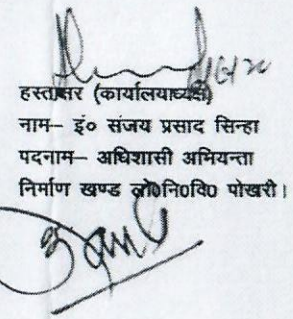 हस्ताक्षर (कार्यालयाध्यक्ष)
नाम– इं० संजय प्रसाद सिन्हा
पदनाम– अधिशासी अभियन्ता
निर्माण खण्ड लो०नि०वि० पोखरी।